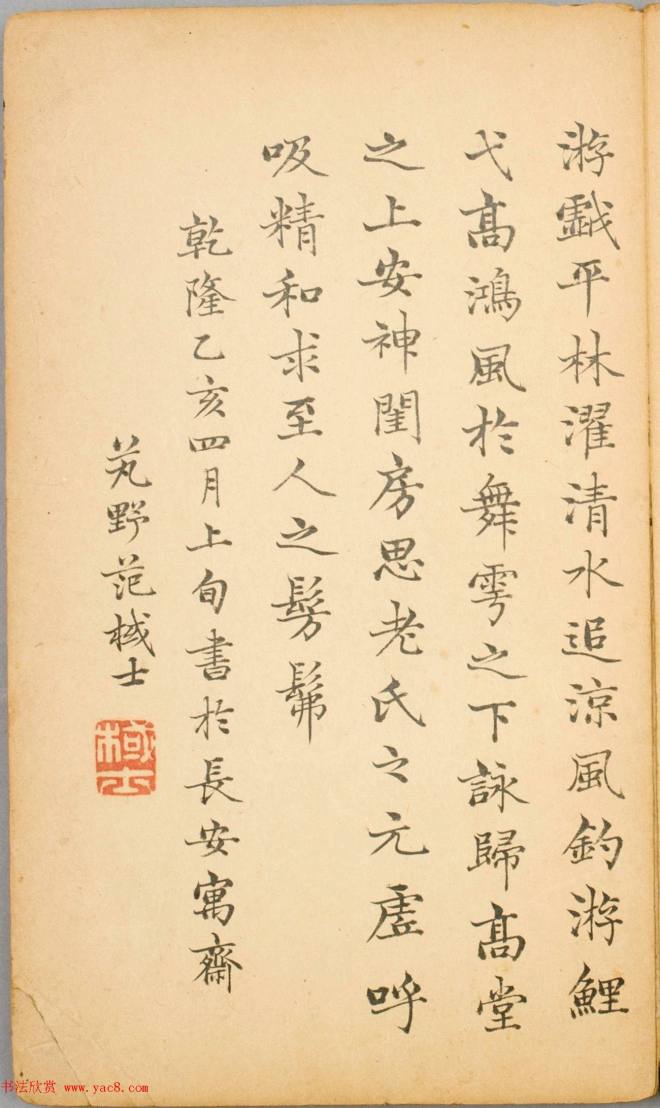 游戲平林濯清水追涼風釣游鯉
弋髙鴻風於舞雩之下詠歸髙堂
之上安神閨房思老氏之元虛呼
吸精和求至人之髣髴
乾隆乙亥四月上旬書於長安寓齋
芄野范棫士
棫士
书法欣赏 www.yac8.com